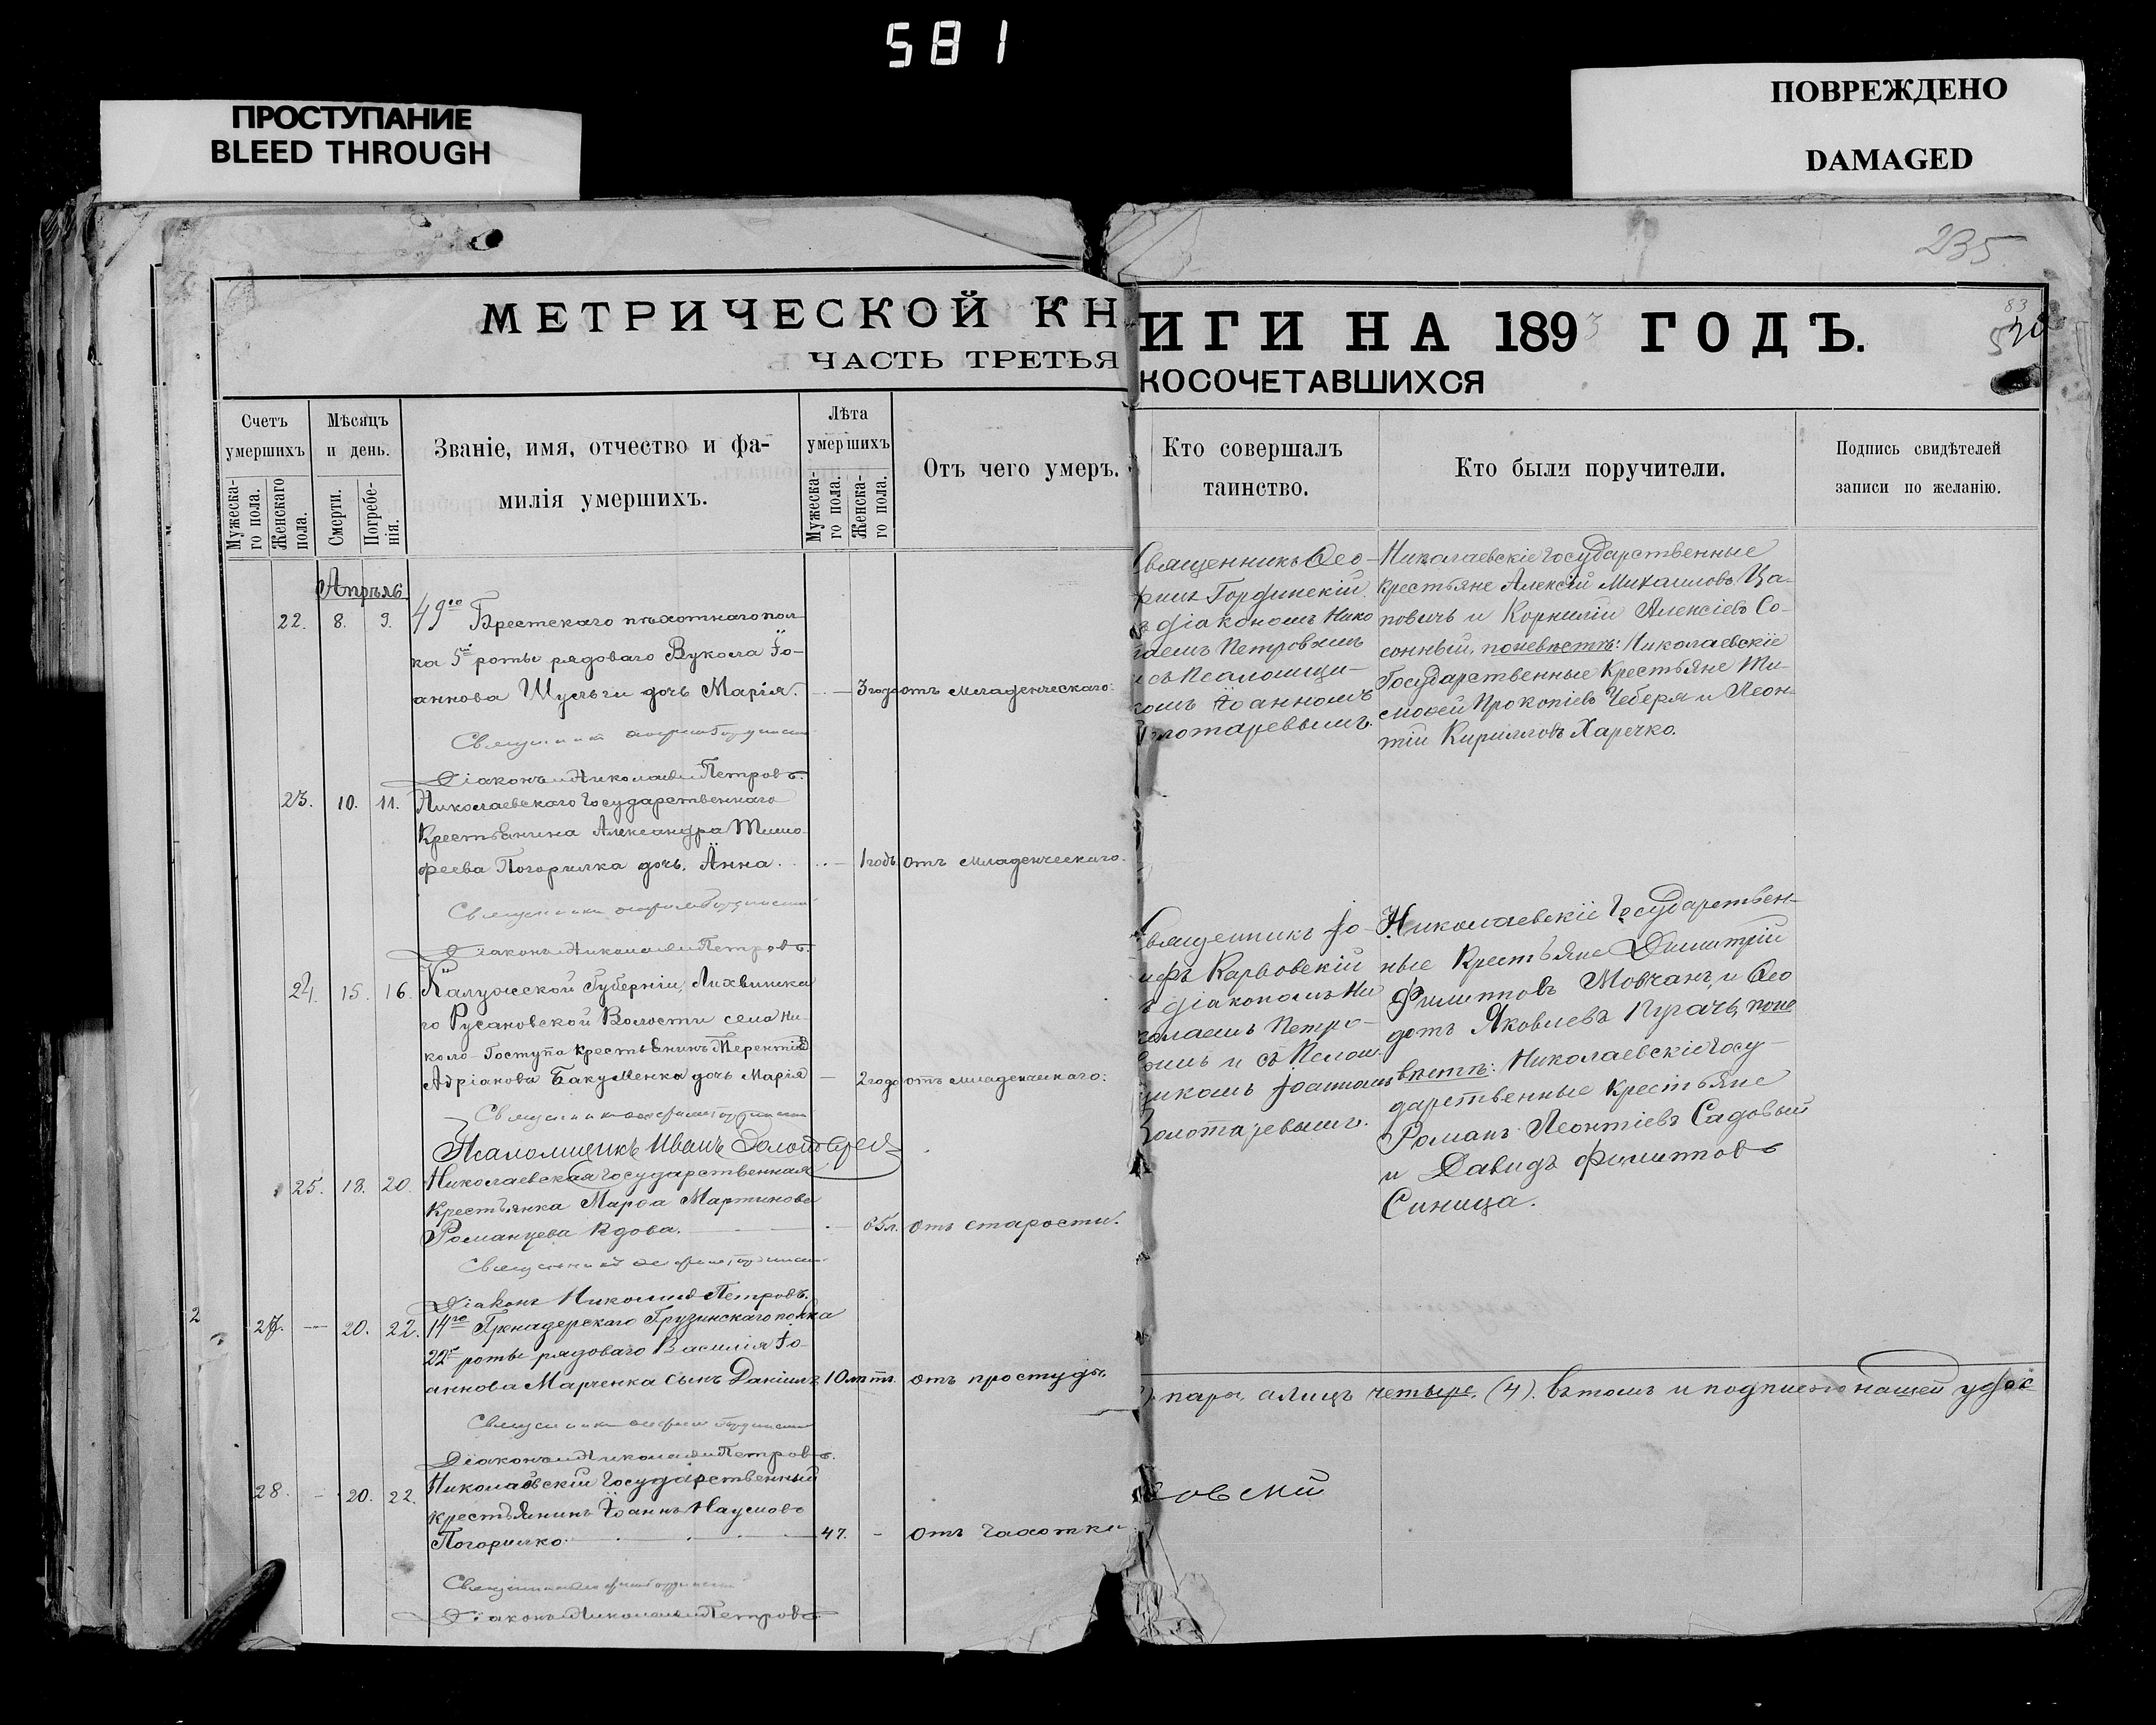 581
ПРОСТУПАНИЕ
BLEED THROUGH
ПОВРЕЖДЕНО
DAMAGED
235
МЕТРИЧЕСКОЙ КН
ЧАСТЬ ТРЕТЬЯ
Счетъ умершихъ
Мужеска-
го пола.
Женскаго
пола.
Мѣсяцъ и день.
Смерти.
Погребе-
нія.
Званіе, имя, отчество и фа-
милія умершихъ.
Лѣта умершихъ
Мужеска-
го пола.
Женска-
го пола.
Отъ чего умеръ.
Апрѣль.
22. 8. 9. 49го Брестскаго пѣхотнаго пол-
ка 5й роты рядоваго Вукола Іо-
аннова Шульги дочь Марія. — 3 года отъ младенческаго.
Священникъ
Діаконъ Николай Петровъ.
23. 10. 11. Николаевскаго Государственнаго
Крестьянина Александра Тимо-
феева Погорилка дочь Анна. — 1 годъ отъ младенческаго.
Священникъ
Діаконъ Николай Петровъ.
24. 15. 16. Калужской Губерніи, Лихвинска
го Русановской Волости села Ни-
коло-Гоступа крестьянинъ Терентія
Адріанова Бакуменка дочь Марія — 2 года отъ младенческаго.
Священникъ
Псаломщикъ Иванъ Золотарев
25. 18. 20. Николаевская Государственная
Крестьянка Марѳа Мартинова
Романцева Вдова. — 65 л. отъ старости.
Священникъ
Діаконъ Николай Петровъ.
2
27. — 20. 22. 14го Гренадерскаго Грузинскаго полка
роты рядоваго Василія Іо-
аннова Марченка сынъ Даніилъ 10 лѣтъ. отъ простуды.
Священникъ
Діаконъ Николай Петровъ.
28. - 20. 22. Николаевскій Государственный
крестьянинъ Іоаннъ Наумовъ
Погорилко. 47. - отъ чахотки
Священникъ
Діаконъ Николай Петровъ
ИГИ НА 1893 ГОДЪ.
83
КОСОЧЕТАВШИХСЯ
Кто совершалъ
таинство.
Кто были поручители.
Подпись свидѣтелей
записи по желанію.
Священникъ Ѳео-
Гордынскій
діакономъ Нико
лаемъ Петровымъ
и съ Псаломщи-
комъ Іоанномъ
Золотаревымъ.
Николаевскіе Государственные
крестьяне Алексій Михаиловъ Ца-
повичъ и Корнилій Алексіевъ Со-
сонный, поневѣстѣ: Николаевскіе
Государственные Крестьяне Ти-
моѳей Прокопіевъ Чеберя и Леон-
тій Кирилловъ Харечко.
Священникъ Іо-
сифъ Карвовскій
діакономъ Ни
колаемъ Петро-
вымъ и съ Псалом-
щикомъ Іоанномъ
Золотаревымъ.
Николаевскіе Государствен-
ные Крестьяне Димитрій
Филипповъ Мовчанъ, и Ѳео
дотъ Яковлевъ Пугачъ, поне
вѣстѣ: Николаевскіе Госу-
дарственные Крестьяне
Романъ Леонтіевъ Садовый
и Давидъ Филипповъ
Синица.
) пара, а лицъ четыре. (4). Въ томъ и подписью нашей удос
вовскій